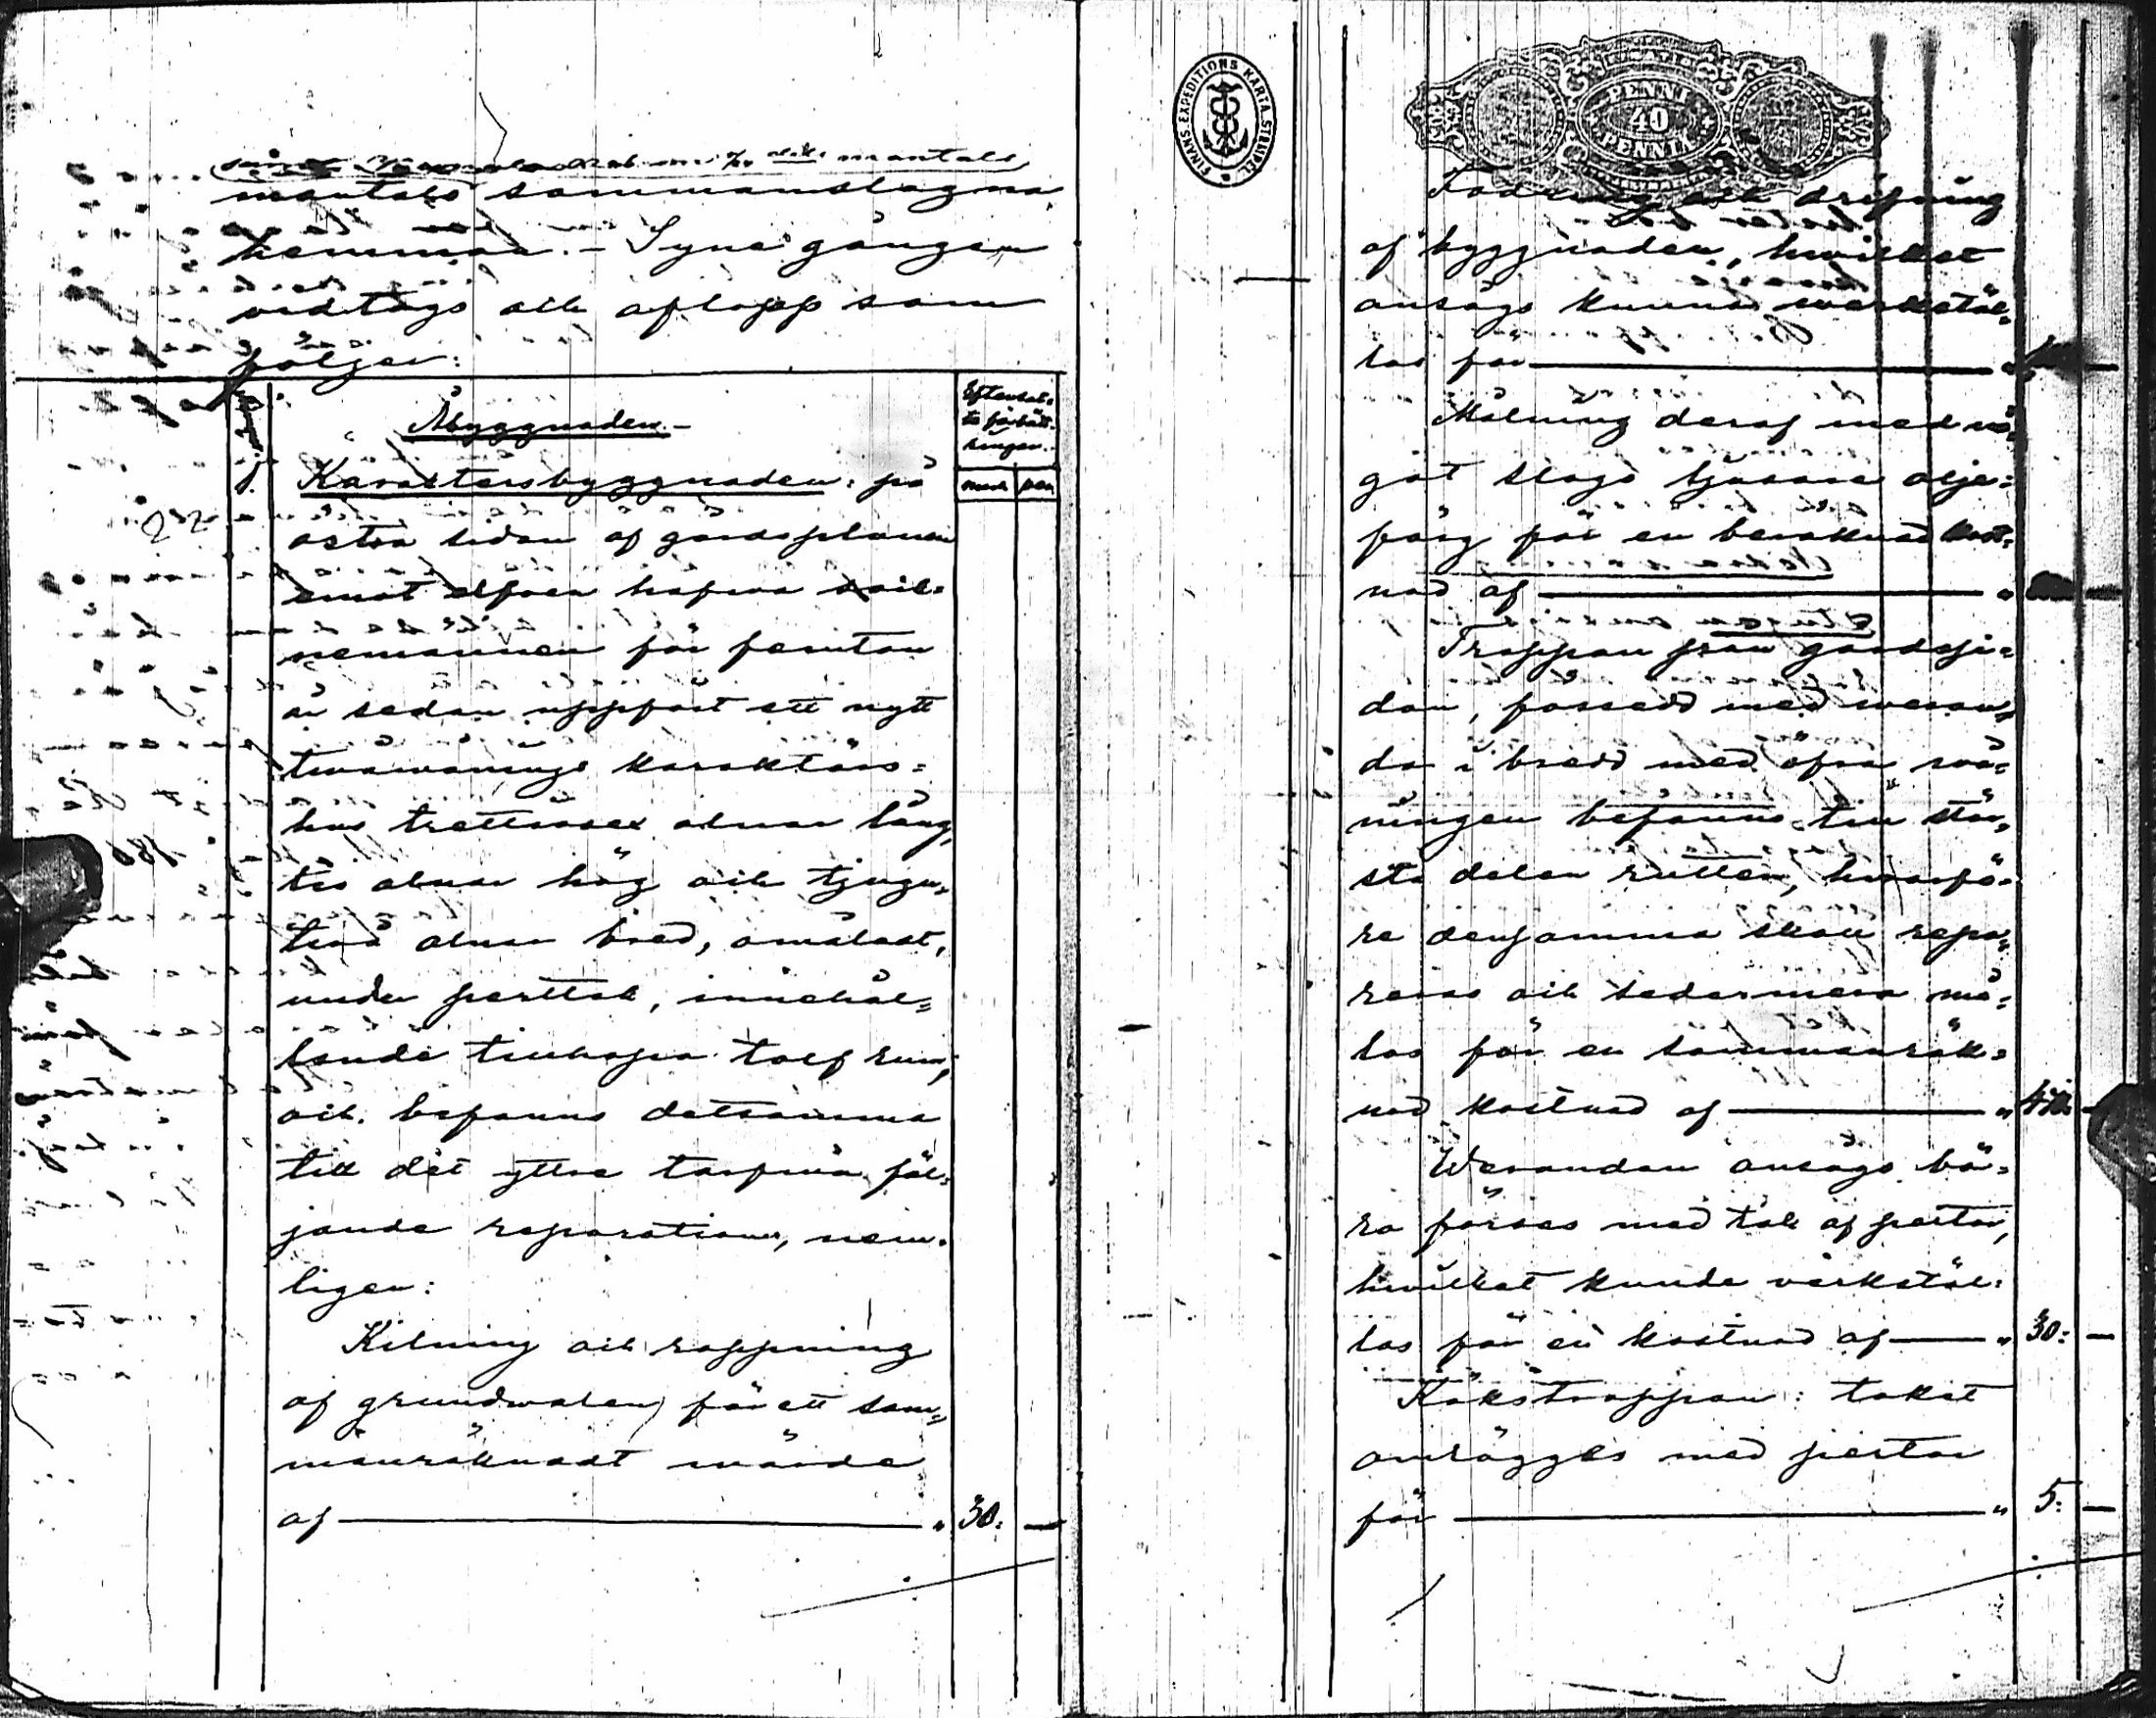 mantals
mantals sammanslagna
hemman. – Syne gången
vidtogs och aflopp som
följer:
Åbyggnaden.–
Eftersat-
ta förbätt-
ringar.
mark pen
1. Karaktersbyggnaden: på
östra sidan af gårdsplanen
emot elfven hafva
nemannen för femton
år sedan uppfört ett nytt
tvåvånings karaktärs=
hus trettiosex alnar lång,
tio alnar hög och tjugu-
två alnar bred, omåladt,
under perttak, innehål=
lande tillhopa tolf rum,
och befanns detsamma
till det yttre tarfva föl-
jande reparationer, nem-
ligen:
Kilning och rappning
af grundvalen för ett sam-
manräknadt värde
af — " 30: —
FINANS-EXPEDITIONS KARTA STÄMPEL
PENNI
40
PENNIÄ
Fodring och drifning
af byggnaden, hvilket
ansågs kunna verkstäl-
las för — "
Målning deraf med nå-
got slags ljusare olje-
färg för en beräknad kost-
nad af — "
Trappan från gårdssi-
dan, försedd med veran-
da i bredd med öfra vå-
ningen befanns till stör-
sta delen rutten, hvarfö-
re densamma skall repa-
reras och sedermera må-
las för en sammanräk-
nad kostnad af — "
Verandan ansågs bö-
ra förses med tak af pertor,
hvilket kunde verkstäl-
las för en kostnad af — " 30: —
Kökstrappan: taket
omlägges med pertor
för — " 5: —